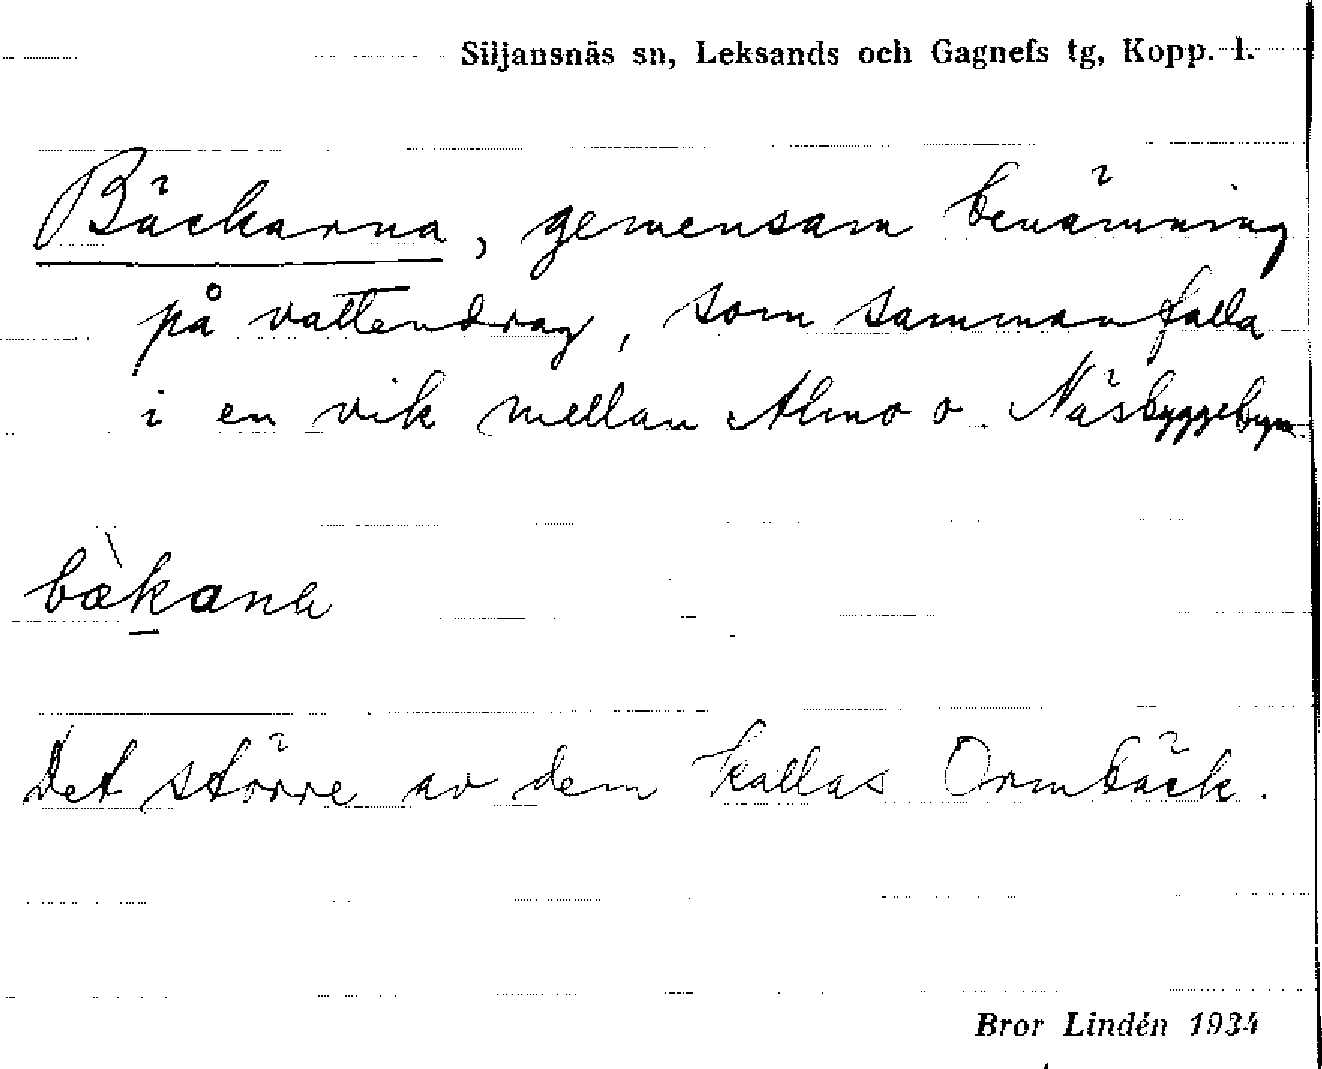 Siljansnäs sn, Leksands och Gagnefs tg, Kopp. l.
Bäckarna, gemensam benämning
på vattendrag, som sammanfalla
i en vik mellan Almo o. Näsbyggebyn
bæ̀kana
Det större av dem kallas Ormbäck.
Bror Lindén 1934